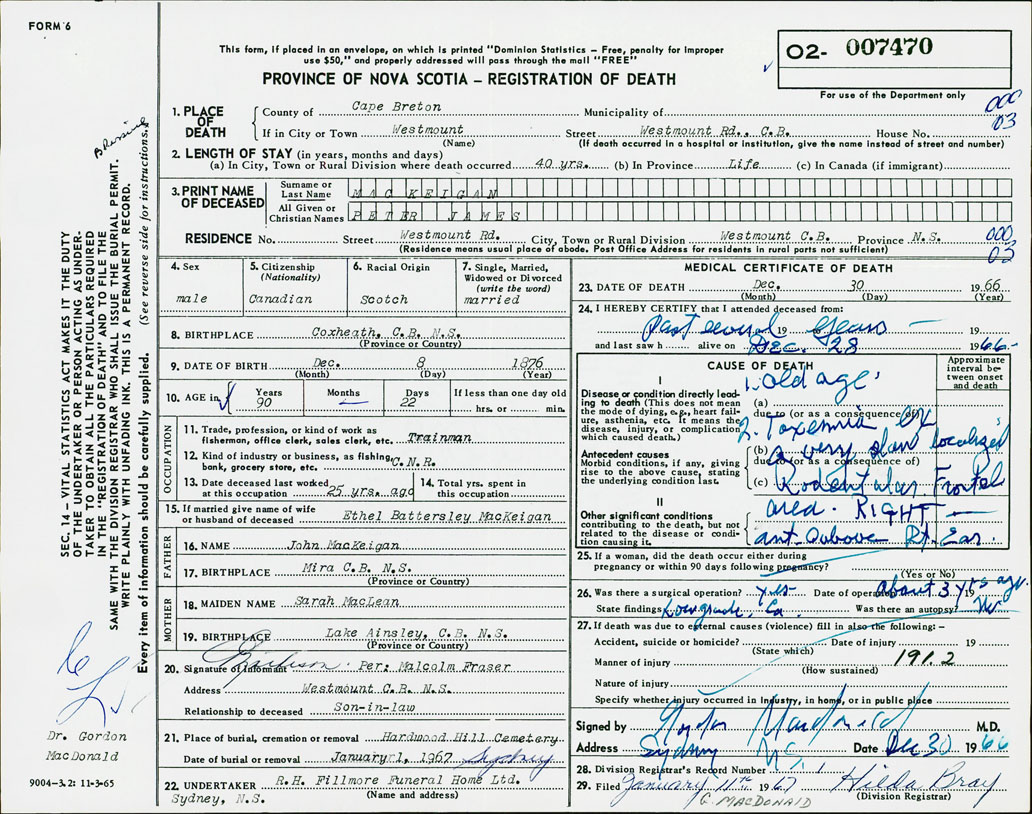 FORM 6
This form, if placed in an envelope, on which is printed "Dominion Statistics – Free, penalty for improper
use $50," and properly addressed will pass through the mail "FREE"
PROVINCE OF NOVA SCOTIA – REGISTRATION OF DEATH
02- 007470
For use of the Department only
000
03
1. PLACE OF DEATH
County of Cape Breton Municipality of
If in City or Town Westmount Street Westmount Rd., C.B. House No.
(Name) (If death occurred in a hospital or institution, give the name instead of street and number)
2. LENGTH OF STAY (in years, months and days)
(a) In City, Town or Rural Division where death occurred 40 yrs. (b) In Province Life (c) In Canada (if immigrant)
3. PRINT NAME OF DECEASED
Surname or Last Name MACKEIGAN
All Given or Christian Names PETER JAMES
RESIDENCE No. Street Westmount Rd. City, Town or Rural Division Westmount C.B. Province N.S.
(Residence means usual place of abode. Post Office Address for residents in rural parts not sufficient)
000
03
4. Sex
male
5. Citizenship
(Nationality)
Canadian
6. Racial Origin
Scotch
7. Single, Married,
Widowed or Divorced
(write the word)
married
8. BIRTHPLACE Coxheath, C.B. N.S.
(Province or Country)
9. DATE OF BIRTH Dec. 8 1876
(Month) (Day) (Year)
10. AGE in
Years
90
Months
Days
22
If less than one day old
hrs. or min.
OCCUPATION
11. Trade, profession, or kind of work as
fisherman, office clerk, sales clerk, etc. Trainman
12. Kind of industry or business, as fishing,
bank, grocery store, etc. C.N.R.
13. Date deceased last worked
at this occupation 25 yrs. ago
14. Total yrs. spent in
this occupation
15. If married give name of wife
or husband of deceased Ethel Battersley MacKeigan
FATHER
16. NAME John MacKeigan
17. BIRTHPLACE Mira C.B. N.S.
(Province or Country)
MOTHER
18. MAIDEN NAME Sarah MacLean
19. BIRTHPLACE Lake Ainsley, C.B. N.S.
(Province or Country)
20. Signature of informant Per: Malcolm Fraser
Address Westmount C.B. N.S.
Relationship to deceased Son-in-law
21. Place of burial, cremation or removal Hardwood Hill Cemetery
Date of burial or removal January 1, 1967 Sydney
22. UNDERTAKER R.H. Fillmore Funeral Home Ltd.
Sydney, N.S. (Name and address)
MEDICAL CERTIFICATE OF DEATH
23. DATE OF DEATH Dec. 30 1966
(Month) (Day) (Year)
24. I HEREBY CERTIFY that I attended deceased from:
past several 19 years 19
and last saw h alive on DEC. 28 1966
CAUSE OF DEATH
Approximate
interval be-
tween onset
and death
I
Disease or condition directly lead-
ing to death (This does not mean
the mode of dying, e.g., heart fail-
ure, asthenia, etc. It means the
disease, injury, or complication
which caused death.)
1. old age
(a)
due to (or as a consequence of)
2. Toxemia of
(b) a very slow localized
due to (or as a consequence of)
(c) Rodent ular Frontal
Antecedent causes
Morbid conditions, if any, giving
rise to the above cause, stating
the underlying condition last.
II
Other significant conditions
contributing to the death, but not
related to the disease or condi-
tion causing it.
area. RIGHT
ant. above Rt. Ear
25. If a woman, did the death occur either during
pregnancy or within 90 days following pregnancy?
(Yes or No)
26. Was there a surgical operation? yes Date of operation about 3 yrs ago 19
State findings Low grade Ca Was there an autopsy? No
27. If death was due to external causes (violence) fill in also the following: –
Accident, suicide or homicide? Date of injury 19
(State which)
Manner of injury 191.2
(How sustained)
Nature of injury
Specify whether injury occurred in industry, in home, or in public place
Signed by Gordon MacDonald M.D.
Address Sydney NS Date Dec 30 1966
28. Division Registrar's Record Number
29. Filed January 11th 1967 Hilda Bray
(Division Registrar)
G. MACDONALD
SEC. 14 – VITAL STATISTICS ACT MAKES IT THE DUTY
OF THE UNDERTAKER OR PERSON ACTING AS UNDER-
TAKER TO OBTAIN ALL THE PARTICULARS REQUIRED
IN THE "REGISTRATION OF DEATH" AND TO FILE THE
SAME WITH THE DIVISION REGISTRAR WHO SHALL ISSUE THE BURIAL PERMIT.
WRITE PLAINLY WITH UNFADING INK. THIS IS A PERMANENT RECORD.
Every item of information should be carefully supplied. (See reverse side for instructions.)
Dr. Gordon
MacDonald
9004–3.2: 11-3-65